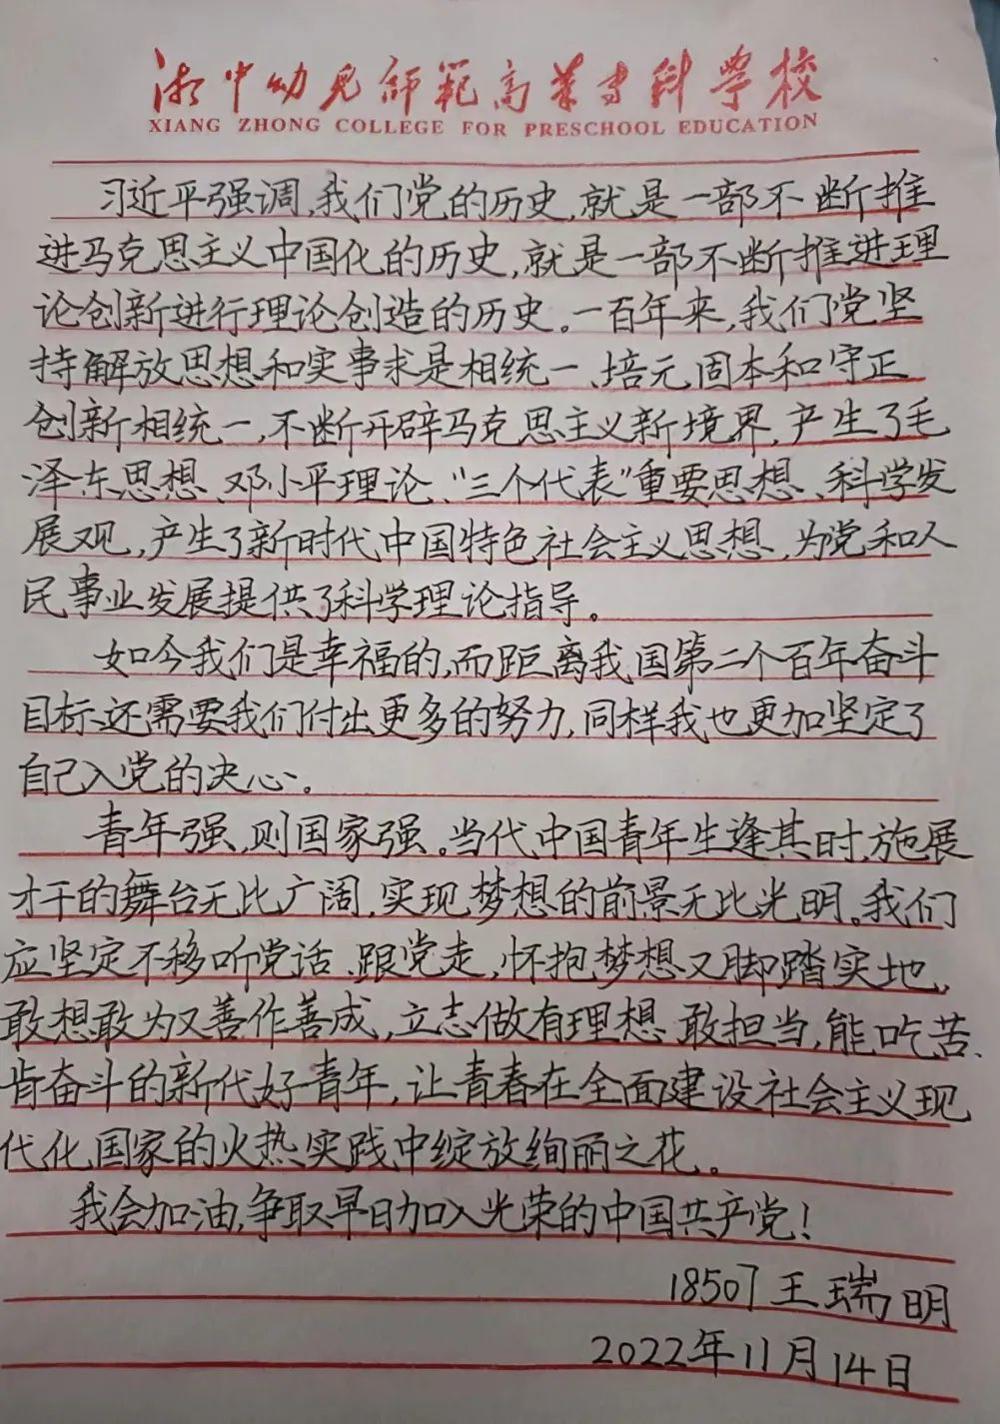 湘中幼兒師範高等專科學校
XIANG ZHONG COLLEGE FOR PRESCHOOL EDUCATION
习近平强调,我们党的历史,就是一部不断推
进马克思主义中国化的历史,就是一部不断推进理
论创新进行理论创造的历史。一百年来,我们党坚
持解放思想和实事求是相统一、培元固本和守正
创新相统一,不断开辟马克思主义新境界,产生了毛
泽东思想、邓小平理论、“三个代表”重要思想、科学发
展观,产生了新时代中国特色社会主义思想,为党和人
民事业发展提供了科学理论指导。
如今我们是幸福的,而距离我国第二个百年奋斗
目标还需要我们付出更多的努力,同样我也更加坚定了
自己入党的决心。
青年强,则国家强。当代中国青年生逢其时,施展
才干的舞台无比广阔,实现梦想的前景无比光明。我们
应坚定不移听党话、跟党走,怀抱梦想又脚踏实地,
敢想敢为又善作善成,立志做有理想、敢担当,能吃苦、
肯奋斗的新代好青年,让青春在全面建设社会主义现
代化国家的火热实践中绽放绚丽之花。
我会加油,争取早日加入光荣的中国共产党!
18507王瑞明
2022年11月14日